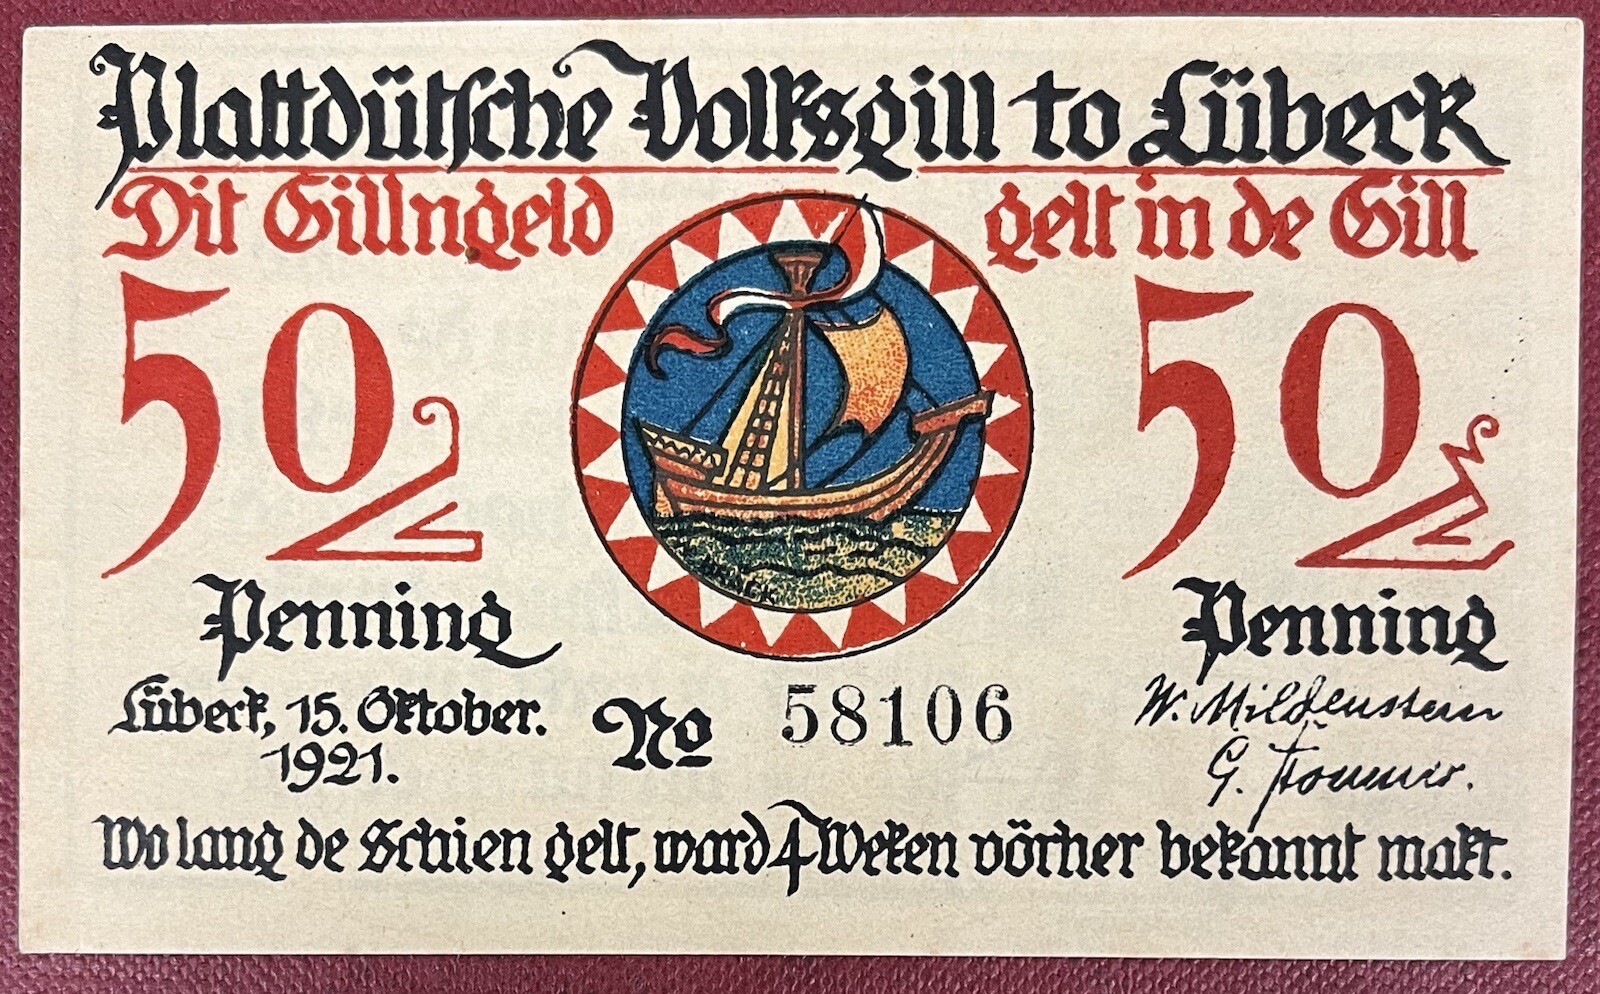 Plattdütsche Volksgill to Lübeck
Dit Gillngeld gelt in de Gill
50 50
Penning Penning
Lübeck, 15. Oktober.
1921.
No 58106
W. Mildenstein
G.
Wo lang de Schien gelt, ward 4 Weken vörher bekannt makt.